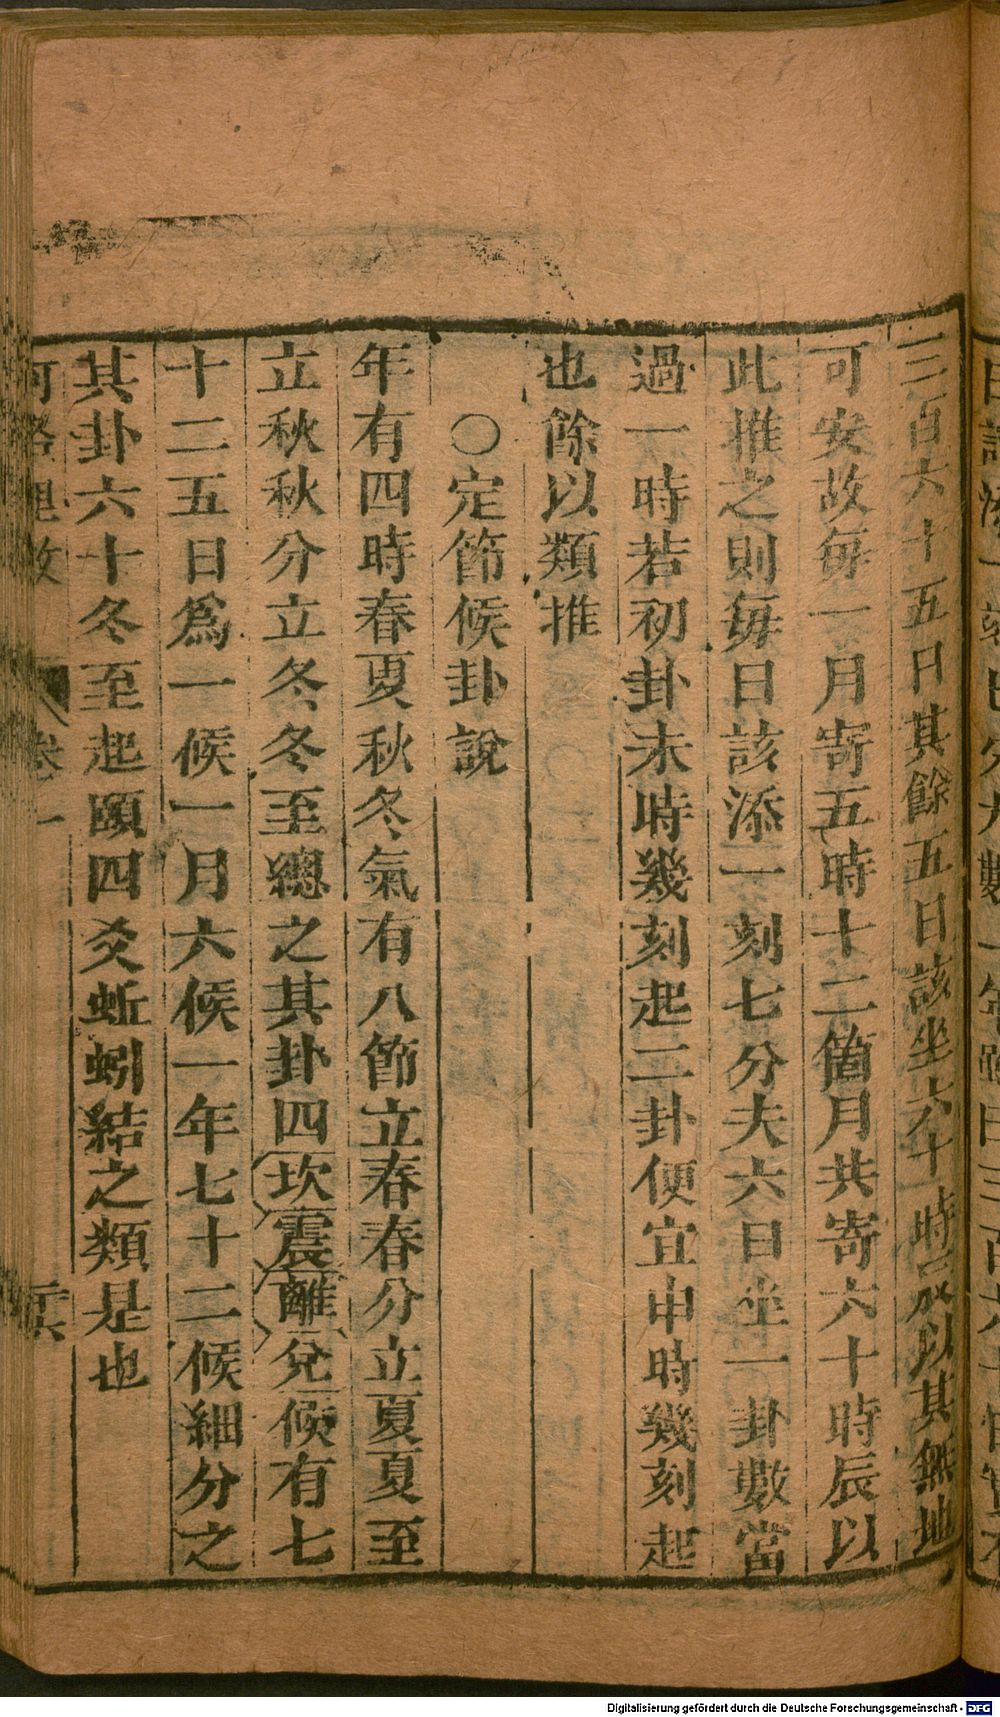 三百六十五日其餘五日該坐六十時辰以其無地
可安故每一月寄五時十二箇月共寄六十時辰以
此推之則每日該添一刻七分夫六日坐一卦數當
過一時若初卦未時幾刻起二卦便宜申時幾刻起
也餘以類推
〇定節候卦說
年有四時春夏秋冬氣有八節立春春分立夏夏至
立秋秋分立冬冬至總之其卦四坎震離兌候有七
十二五日爲一候一月六候一年七十二候細分之
其卦六十冬至起頤四爻蚯蚓結之類是也
卷一
Digitalisierung gefördert durch die Deutsche Forschungsgemeinschaft - DFG